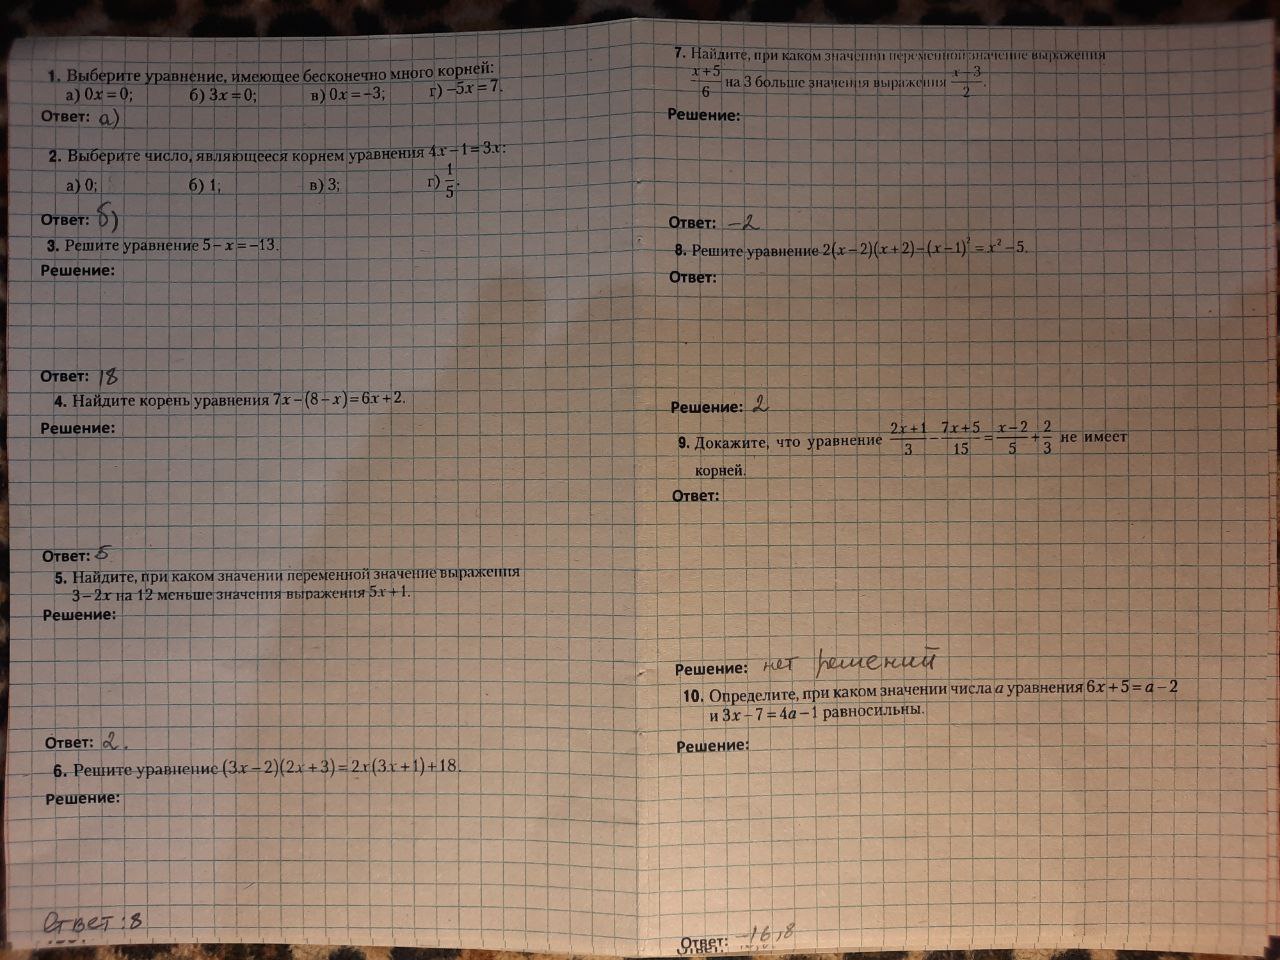 1. Выберите уравнение, имеющее бесконечно много корней:
а) 0x = 0; б) 3x = 0; в) 0x = –3; г) –5x = 7.
Ответ: а)
2. Выберите число, являющееся корнем уравнения 4x – 1 = 3x:
а) 0; б) 1; в) 3; г) 1/5.
Ответ: б)
3. Решите уравнение 5 – x = –13.
Решение:
Ответ: 18
4. Найдите корень уравнения 7x – (8 – x) = 6x + 2.
Решение:
Ответ: 5
5. Найдите, при каком значении переменной значение выражения
3 – 2x на 12 меньше значения выражения 5x + 1.
Решение:
Ответ: 2.
6. Решите уравнение (3x – 2)(2x + 3) = 2x(3x + 1) + 18.
Решение:
Ответ: 8
7. Найдите, при каком значении переменной значение выражения
(x + 5)/6 на 3 больше значения выражения (x – 3)/2.
Решение:
Ответ: –2
8. Решите уравнение 2(x – 2)(x + 2) – (x – 1)² = x² – 5.
Ответ:
Решение: 2
9. Докажите, что уравнение (2x + 1)/3 – (7x + 5)/15 = (x – 2)/5 + 2/3 не имеет
корней.
Ответ:
Решение: нет решений
10. Определите, при каком значении числа a уравнения 6x + 5 = a – 2
и 3x – 7 = 4a – 1 равносильны.
Решение:
Ответ: –16,8